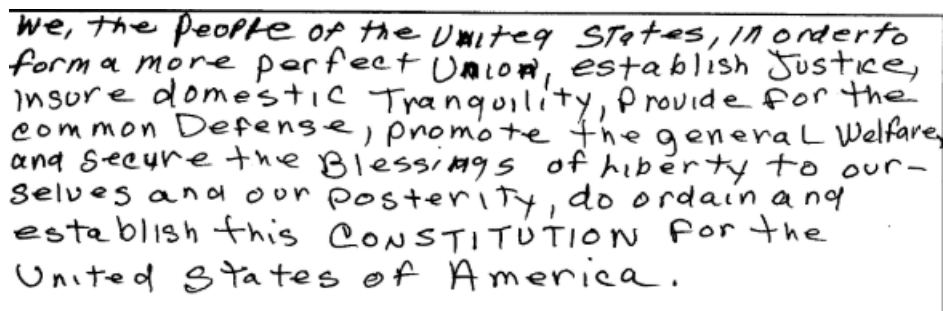 We, the People of the United States, in order to
form a more perfect Union, establish Justice,
insure domestic Tranquility, Provide for the
common Defense, promote the general Welfare,
and secure the Blessings of Liberty to our-
selves and our posterity, do ordain and
establish this CONSTITUTION for the
United States of America.